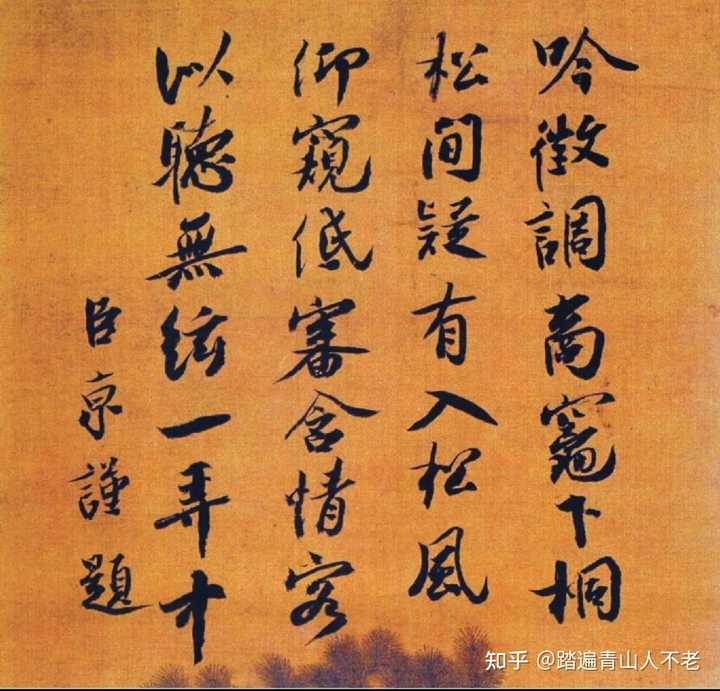 吟徵調商竈下桐
松間疑有入松風
仰窺低審含情客
似聽無絃一弄中
臣京謹題
知乎 @踏遍青山人不老